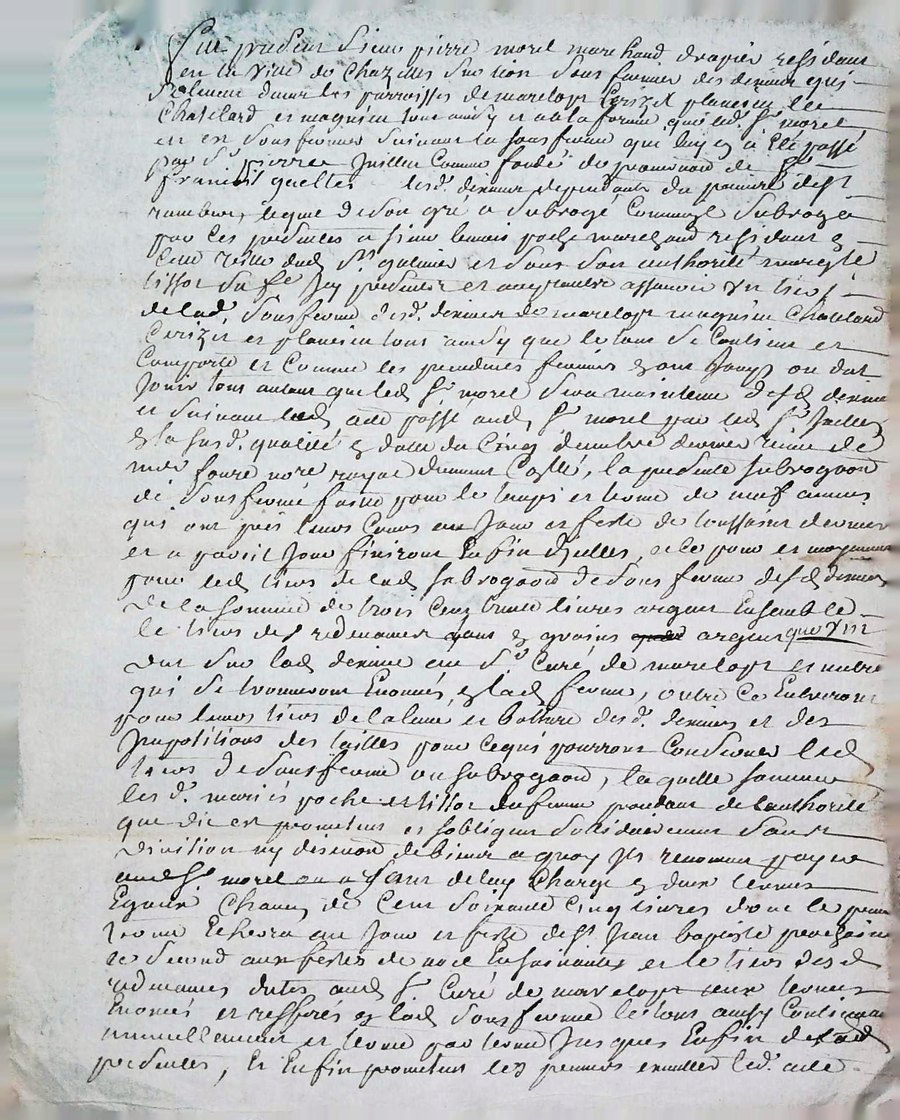 fut present sieur pierre morel marchand drapier residant
en la ville de Chazelles sur lion sous fermier des dixmes qui
se levent dans les parroisses de marelops Cerizet planein le
Chatelard et magnieu tout ainsy et a la forme que led. Sr morel
est en sous fermes suivant la sous ferme qui luy en a eté passé
par Sr pierre Juillen Comme fondé de procuration de Sr
francois quelles lesd. dixmes dependants du prieuré de St
rambert, lequel de son gré a subrogé Comme il subroge
par ces presentes a sieur benoit poche marchand residant en
Cette ville dud. St galmier et sous son authorité margte
tissot sa fe Icy presents et acceptants assavoir un tiers
de lad. sous ferme desd. dixmes de marelops magnieu Chatelard
Cerizet et planein tous ainsy que le tout se Contient et
Comporte et Comme les precedents fermiers en ont Jouys ou dut
Jouir tout autant que led. Sr morel sera maintenu desd. dixmes
et suivant led. acte passé aud. Sr morel par led. Sr Juillen
en la susd. qualité en datte du Cinq decembre dernier reçue de
mre faure nore royal , la presente subrogaon
de sous ferme faitte pour le temps et terme de neuf années
qui ont pris leurs Cours au Jour et feste de toussaint dernier
et a pareil Jour finiront Enfin dycelles, et ce pour et moyennant
pour led. tiers de lad. subrogaon de sous ferme desd. dixmes
de la somme de trois Cent trente livres argent Ensemble
le tiers des redevances tant en grains argent que vin
dut sur lad. dixme au Sr Curé de marelops et autre
qui se trouveront Enoncés en lad. ferme, outre Ce Entreront
pour leurs tiers de la levée et batture desd. dixmes et des
Impositions des tailles pour ce qui pourront Concerner led.
tiers de sous ferme ou subrogaon, laquelle somme
lesd. mariés poche et tissot lad. femme procedant de l'authorité
que dit est promettent et sobligent solidairement sans
division ny discution de biens a quoy Ils renoncent payer
aud. Sr morel ou a ayant de luy Charge en deux termes
Egaux Chacun de Cent soixante Cinq livres dont le premier
terme Echerra au Jour et feste de St Jean baptiste prochain
le second aux festes de noel Ensuivantes et le tiers desd.
redevances dittes aud. Sr Curé de marelops aux termes
Enoncés et referés en lad. sous ferme le tout ainsy Continuer
annuellement et terme par terme Jusques Enfin de lad.
presentes, Et Enfin promettent les preneurs executter led. acte